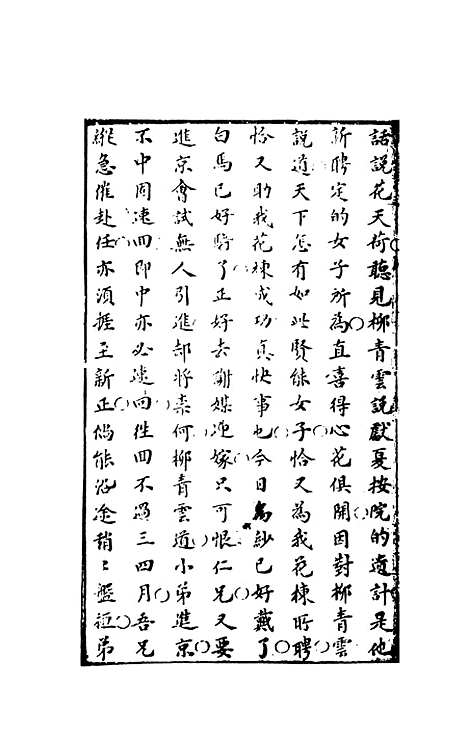 話說花天荷聽見柳青雲說獻夏按院的這計是他
新聘定的女子所為直喜得心花俱開因對柳青雲
說道天下怎有如此賢能女子恰又為我花棟所聘
恰又助我花棟成功真快事也今日烏紗已好戴了
白馬已好騎了正好去謝媒迎嫁只可恨仁兄又要
進京會試無人引進却將柰何柳青雲道小弟進京
不中固速回即中亦必速回往回不過三四月吾兄
縱急催赴任亦須捱至新正倘能沿途稍〻盤桓弟